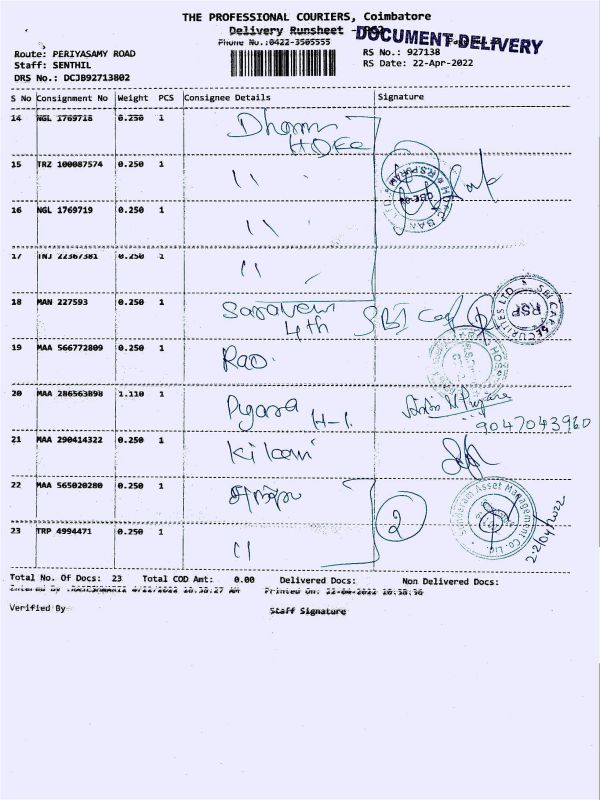 THE PROFESSIONAL COURIERS, Coimbatore
Delivery Runsheet
DOCUMENT DELIVERY
Phone No.:0422-3505555
Route: PERIYASAMY ROAD
RS No.: 927138
Staff: SENTHIL
RS Date: 22-Apr-2022
DRS No.: DCJB92713802
S No Consignment No Weight PCS Consignee Details Signature
14 NGL 1769718 0.250 1
15 TRZ 100087574 0.250 1 〃
16 NGL 1769719 0.250 1 〃
17 TNJ 22367381 0.250 1 〃
18 MAN 227593 0.250 1 4th SBI Cap
SBI CAP SECURITIES LTD. RSP
19 MAA 566772809 0.250 1 Rao.
20 MAA 286563898 1.110 1 H-1.
9047043960
21 MAA 290414322 0.250 1
22 MAA 565020280 0.250 1 2
Sundaram Asset Management Co. Ltd.
22/04/2022
23 TRP 4994471 0.250 1 〃
Total No. Of Docs: 23 Total COD Amt: 0.00 Delivered Docs: Non Delivered Docs:
Printed On: 22-04-2022 10:38:36
Verified By Staff Signature